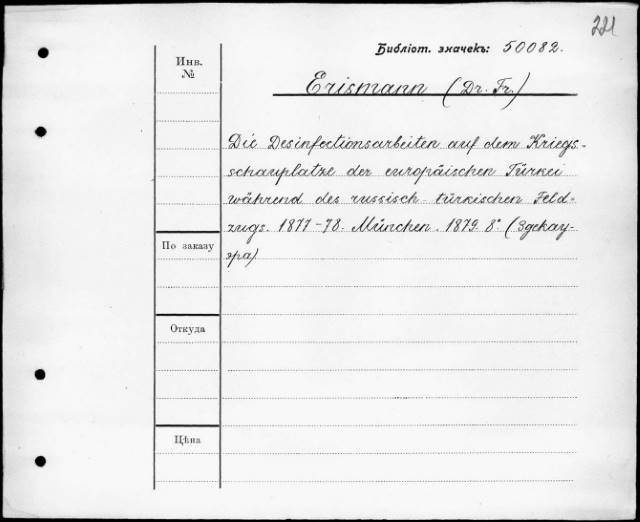 221
Библіот. значекъ: 50082.
Инв.
№
Erismann (Dr. Fr.)
Die Desinfectionsarbeiten auf dem Kriegs-
schauplatze der europäischen Türkei
während des russisch-türkischen Feld-
zugs. 1877-78. München. 1879. 8°. (Здекау-
эра)
По заказу
Откуда
Цѣна